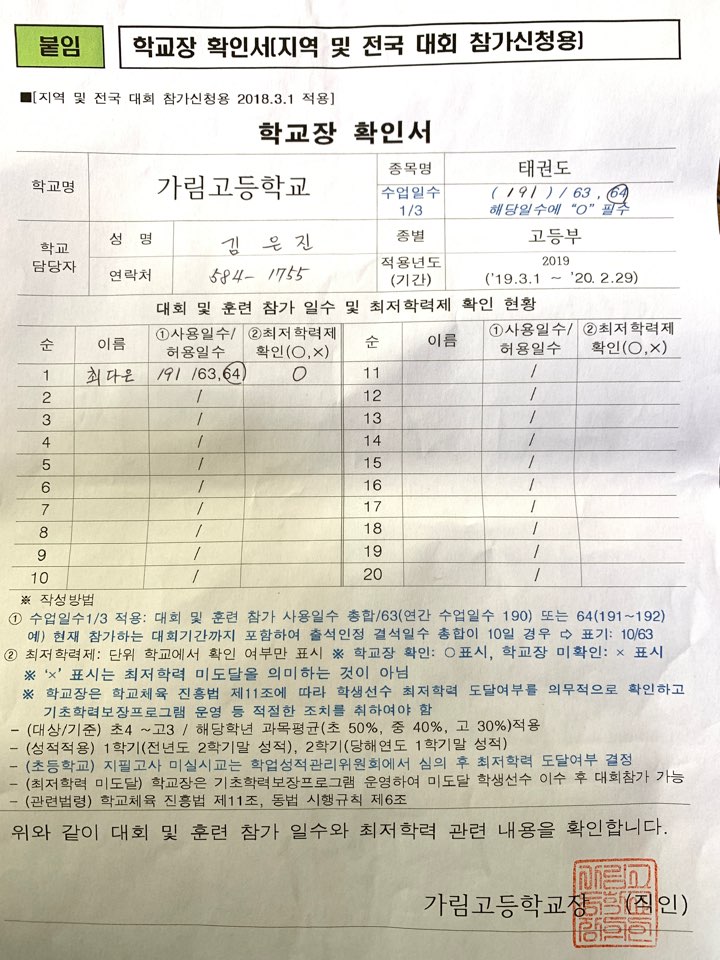 붙임 학교장 확인서(지역 및 전국 대회 참가신청용)
■[지역 및 전국 대회 참가신청용 2018.3.1 적용]
학교장 확인서
학교명 가림고등학교 종목명 태권도
수업일수 1/3 ( 191 ) / 63 , 64
해당일수에 "O" 필수
학교 담당자 성 명 김 은 진 종별 고등부
연락처 584- 1755 적용년도 (기간) 2019
('19.3.1 ~ '20.2.29)
대회 및 훈련 참가 일수 및 최저학력제 확인 현황
순 이름 ①사용일수/허용일수 ②최저학력제 확인(○,×) 순 이름 ①사용일수/허용일수 ②최저학력제 확인(○,×)
1 최다은 191 /63,64 O 11 /
2 / 12 /
3 / 13 /
4 / 14 /
5 / 15 /
6 / 16 /
7 / 17 /
8 / 18 /
9 / 19 /
10 / 20 /
※ 작성방법
① 수업일수1/3 적용: 대회 및 훈련 참가 사용일수 총합/63(연간 수업일수 190) 또는 64(191~192)
예) 현재 참가하는 대회기간까지 포함하여 출석인정 결석일수 총합이 10일 경우 ⇨ 표기: 10/63
② 최저학력제: 단위 학교에서 확인 여부만 표시 ※ 학교장 확인: ○표시, 학교장 미확인: × 표시
※ '×' 표시는 최저학력 미도달을 의미하는 것이 아님
※ 학교장은 학교체육 진흥법 제11조에 따라 학생선수 최저학력 도달여부를 의무적으로 확인하고
기초학력보장프로그램 운영 등 적절한 조치를 취하여야 함
- (대상/기준) 초4 ~고3 / 해당학년 과목평균(초 50%, 중 40%, 고 30%)적용
- (성적적용) 1학기(전년도 2학기말 성적), 2학기(당해연도 1학기말 성적)
- (초등학교) 지필고사 미실시교는 학업성적관리위원회에서 심의 후 최저학력 도달여부 결정
- (최저학력 미도달) 학교장은 기초학력보장프로그램 운영하여 미도달 학생선수 이수 후 대회참가 가능
- (관련법령) 학교체육 진흥법 제11조, 동법 시행규칙 제6조
위와 같이 대회 및 훈련 참가 일수와 최저학력 관련 내용을 확인합니다.
가림고등학교장 (직인)